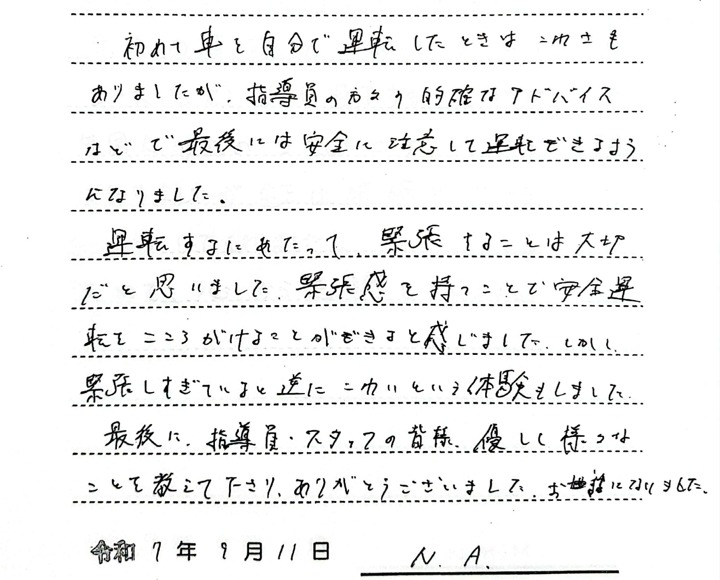 初めて車を自分で運転したときはこわさも
ありましたが、指導員の方々の的確なアドバイス
などで最後には安全に注意して運転できるよう
になりました。
運転するにあたって、緊張することは大切
だと思いました。緊張感を持つことで安全運
転をこころがけることができると感じました。しかし、
緊張しすぎていると逆にこわいという体験もしました。
最後に、指導員・スタッフの皆様、優しく様々な
ことを教えて下さり、ありがとうございました。お世話になりました。
令和7年9月11日 N.A.